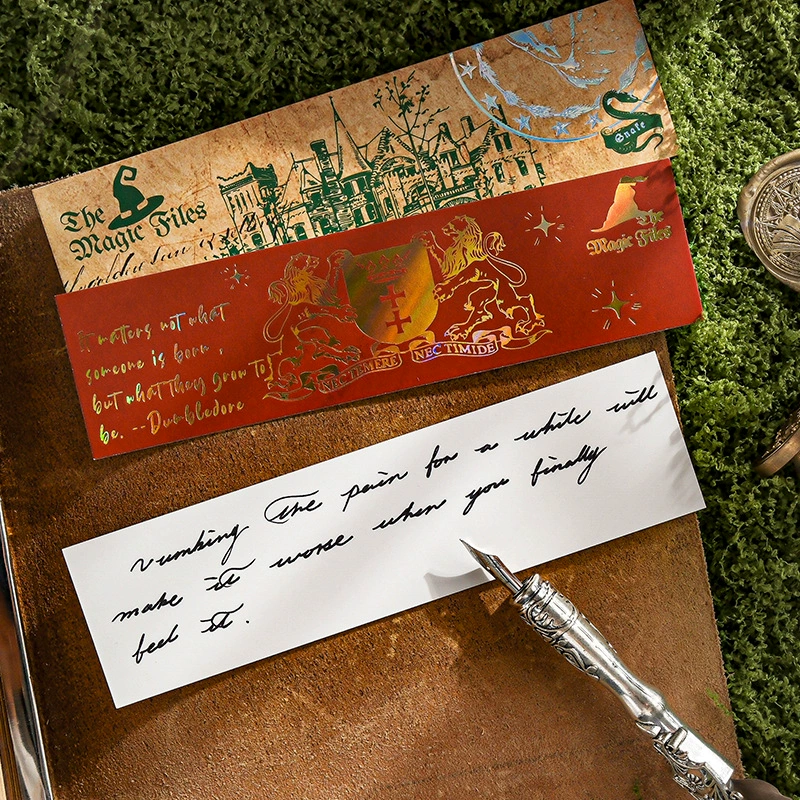 The
Magic Files
Snake
It matters not what
someone is born ,
but what they grow to
be. --Dumbledore
NEC TEMERE NEC TIMIDE
The
Magic Files
numbing the pain for a while will
make it worse when you finally
feel it.